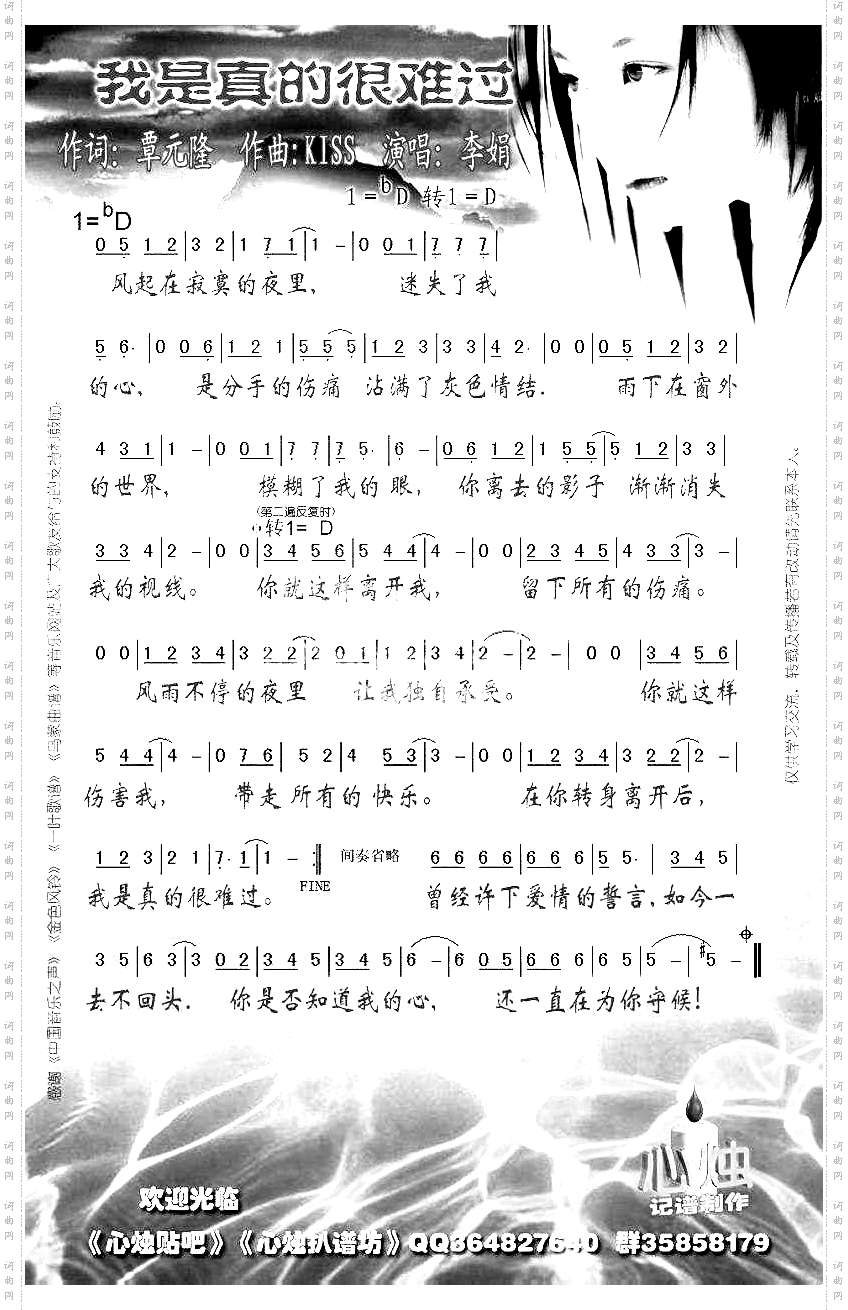 我是真的很难过
作词：覃元隆 作曲：KISS 演唱：李娟
1=bD 转1=D
1=bD
0 5 1 2 | 3 2 | 1 7 1 | 1 - | 0 0 1 | 7 7 7 |
风起在寂寞的夜里， 迷失了我
5 6· | 0 0 6 | 1 2 1 | 5 5 5 | 1 2 3 | 3 3 | 4 2· | 0 0 | 0 5 1 2 | 3 2 |
的心， 是分手的伤痛 沾满了灰色情结． 雨下在窗外
4 3 1 | 1 - | 0 0 1 | 7 7 | 7 5· | 6 - | 0 6 1 2 | 1 5 5 | 5 1 2 | 3 3 |
的世界， 模糊了我的 眼， 你离去的影子 渐渐消失
（第二遍反复时）
转1= D
3 3 4 | 2 - | 0 0 | 3 4 5 6 | 5 4 4 | 4 - | 0 0 | 2 3 4 5 | 4 3 3 | 3 - |
我的视线。 你就这样离开我， 留下所有的伤痛。
0 0 | 1 2 3 4 | 3 2 2 | 2 0 1 | 1 2 | 3 4 | 2 - | 2 - | 0 0 | 3 4 5 6 |
风雨不停的夜里 让我独自承受。 你就这样
5 4 4 | 4 - | 0 7 6 | 5 2 4 5 3 | 3 - | 0 0 | 1 2 3 4 | 3 2 2 | 2 - |
伤害我， 带走 所有的 快乐。 在你转身离开后，
1 2 3 | 2 1 | 7· 1 | 1 - :‖ 间奏省略 6 6 6 6 | 6 6 6 | 5 5· | 3 4 5 |
我是真的很难过。 FINE 曾经许下爱情的誓言，如今一
3 5 | 6 3 | 3 0 2 | 3 4 5 | 3 4 5 | 6 - | 6 0 5 | 6 6 6 | 6 5 | 5 - | #5 - ‖
去不回头． 你是否知道我的心， 还一直在为你守候！
仅供学习交流，转载及传播若有改动请先联系本人。
心烛
记谱制作
欢迎光临
《心烛贴吧》《心烛扒谱坊》QQ364827640 群35858179
词曲网